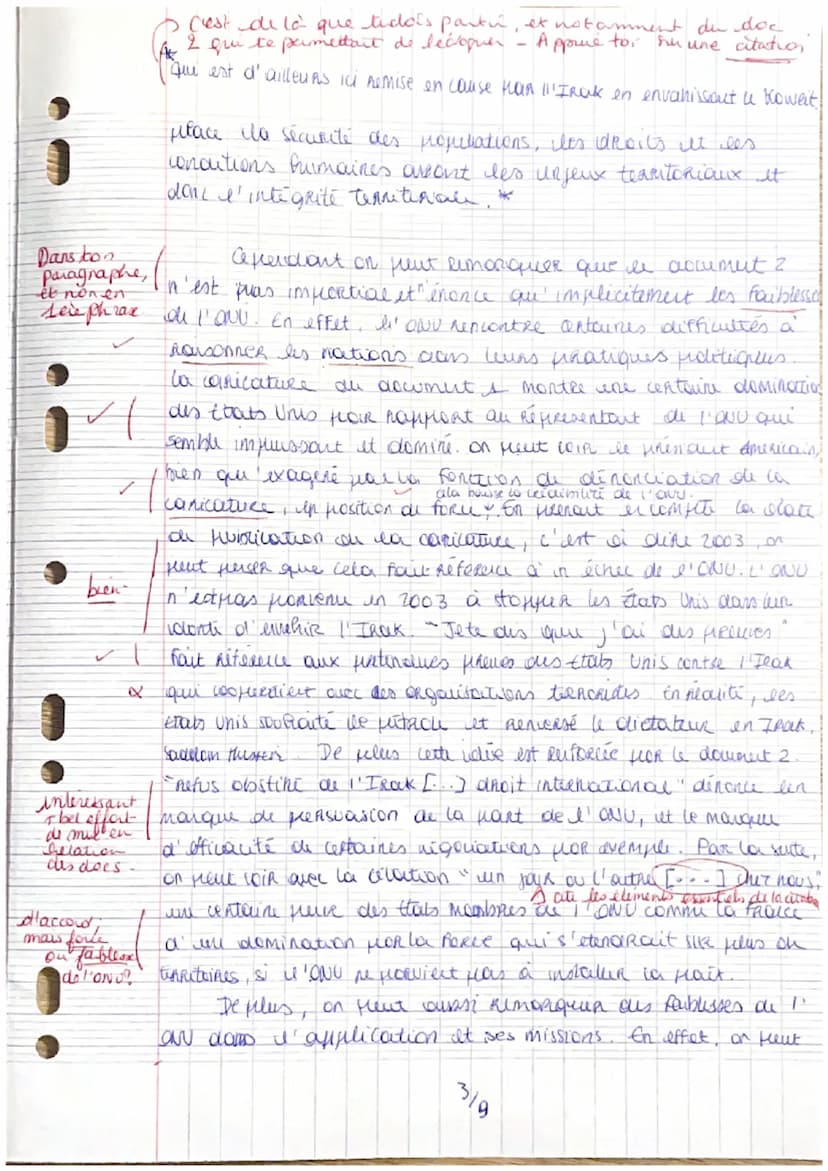 C'est de là que tu dois partir, et notamment du doc
2 qui te permettait de l'évoquer - Appuie toi sur une citation
* qui est d'ailleurs ici remise en cause par l'Irak en envahissant le Koweit.
place la sécurité des populations, les droits et les
conditions humaines avant les enjeux territoriaux et
donc l'intégrité territoriale. *
Dans ton
paragraphe,
et non en
1ère phrase
Cependant on peut remarquer que le document 2
n'est pas impartial et énonce qu'implicitement les faiblesses
de l'ONU. En effet, l'ONU rencontre certaines difficultés à
raisonner les nations dans leurs pratiques politiques.
La caricature du document 1 montre une certaine domination
des États Unis par rapport au représentant de l'ONU qui
semble impuissant et dominé. On peut voir le président Américain,
bien qu'exagéré par la fonction de dénonciation de la
à la hausse la légitimité de l'ONU.
caricature, en position de force. En prenant en compte la date
de publication de la caricature, c'est à dire 2003, on
peut penser que cela fait référence à un échec de l'ONU. L'ONU
bien
n'est pas parvenu en 2003 à stopper les États Unis dans leur
volonté d'envahir l'Irak. "Je te dis que j'ai des preuves"
fait référence aux prétendues preuves des États Unis contre l'Irak
qui coopérdient avec des organisations terroristes. En réalité, les
États Unis souhaité le pétrole et renversé le dictateur en Irak,
Saddam Hussein. De plus cette idée est renforcée par le document 2.
"refus obstiné de l'Irak [...] droit international" dénonce un
intéressant
+ bel effort
de mise en
relation
des docs.
manque de persuasion de la part de l'ONU, et le manque
d'efficacité de certaines négociations par exemple. Par la suite,
on peut voir avec la citation "un jour ou l'autre [...] chez nous",
cite les éléments essentiels de la citation
une certaine peur des États membres de l'ONU comme la France
d'accord,
mais force
ou faiblesse
de l'ONU?
d'une domination par la force qui s'étendrait sur plus de
territoires, si l'ONU ne parvient pas à installer la paix.
De plus, on peut aussi remarquer des faiblesses de l'
ONU dans l'application et ses missions. En effet, on peut
3/9